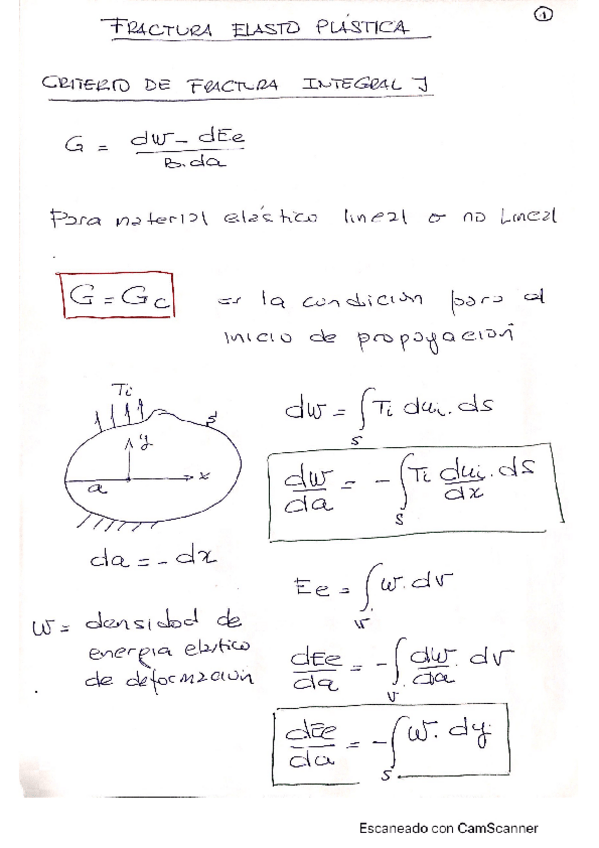 1
FRACTURA ELASTO PLÁSTICA
CRITERIO DE FRACTURA INTEGRAL J
G = dw - dEe / B.da
Para material elástico lineal o no Lineal
G = Gc es la condición para el
inicio de propagación
Ti
S
y
x
a
da = - dx
dw = ∫s Ti dui. ds
dw/da = - ∫s Ti dui/dx . ds
Ee = ∫v w. dv
w = densidad de
energia elastico
de deformación
dEe/da = - ∫v dw/da . dv
dEe/da = - ∫s w. dy
Escaneado con CamScanner